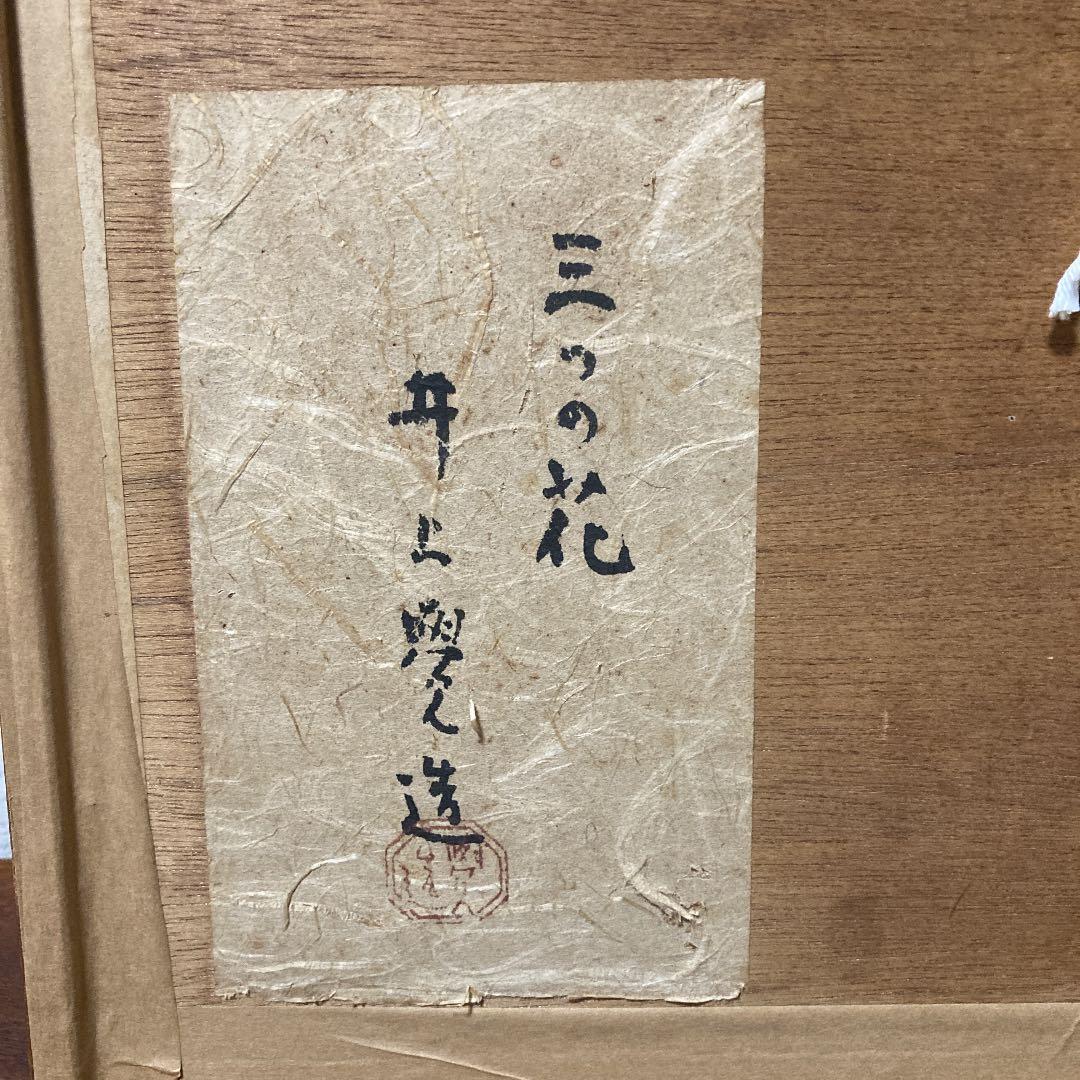 三ツの花
井上覺造
覺造